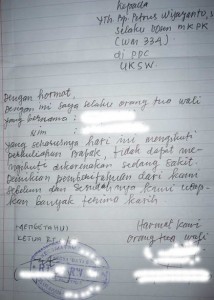 Kepada
Yth. Bp. Petrus Wijayanto,
Selaku Dosen MKPK
(WM 334)
di PPC
UKSW.
Dengan hormat,
Dengan ini saya selaku orang tua wali
yang bernama :
NIM :
yang seharusnya hari ini mengikuti
perkuliahan Praktek, tidak dapat me-
ngikuti dikarenakan sedang sakit
Demikian pemberitahuan dari kami
Sebelum dan Sesudahnya kami ucap-
kan banyak terima kasih
MENGETAHUI
KETUA RT
Hormat kami
orang tua wali